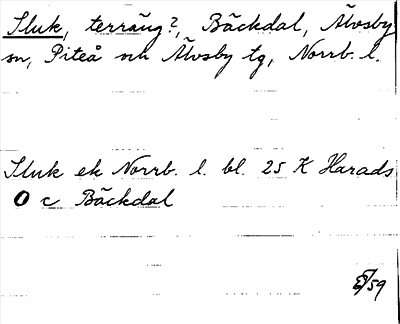 Sluk, terräng?, Bäckdal, Älvsby
sn, Piteå och Älvsby tg, Norrb. l.
Sluk ek Norrb. l. bl. 25 K Harads
O c Bäckdal
/59